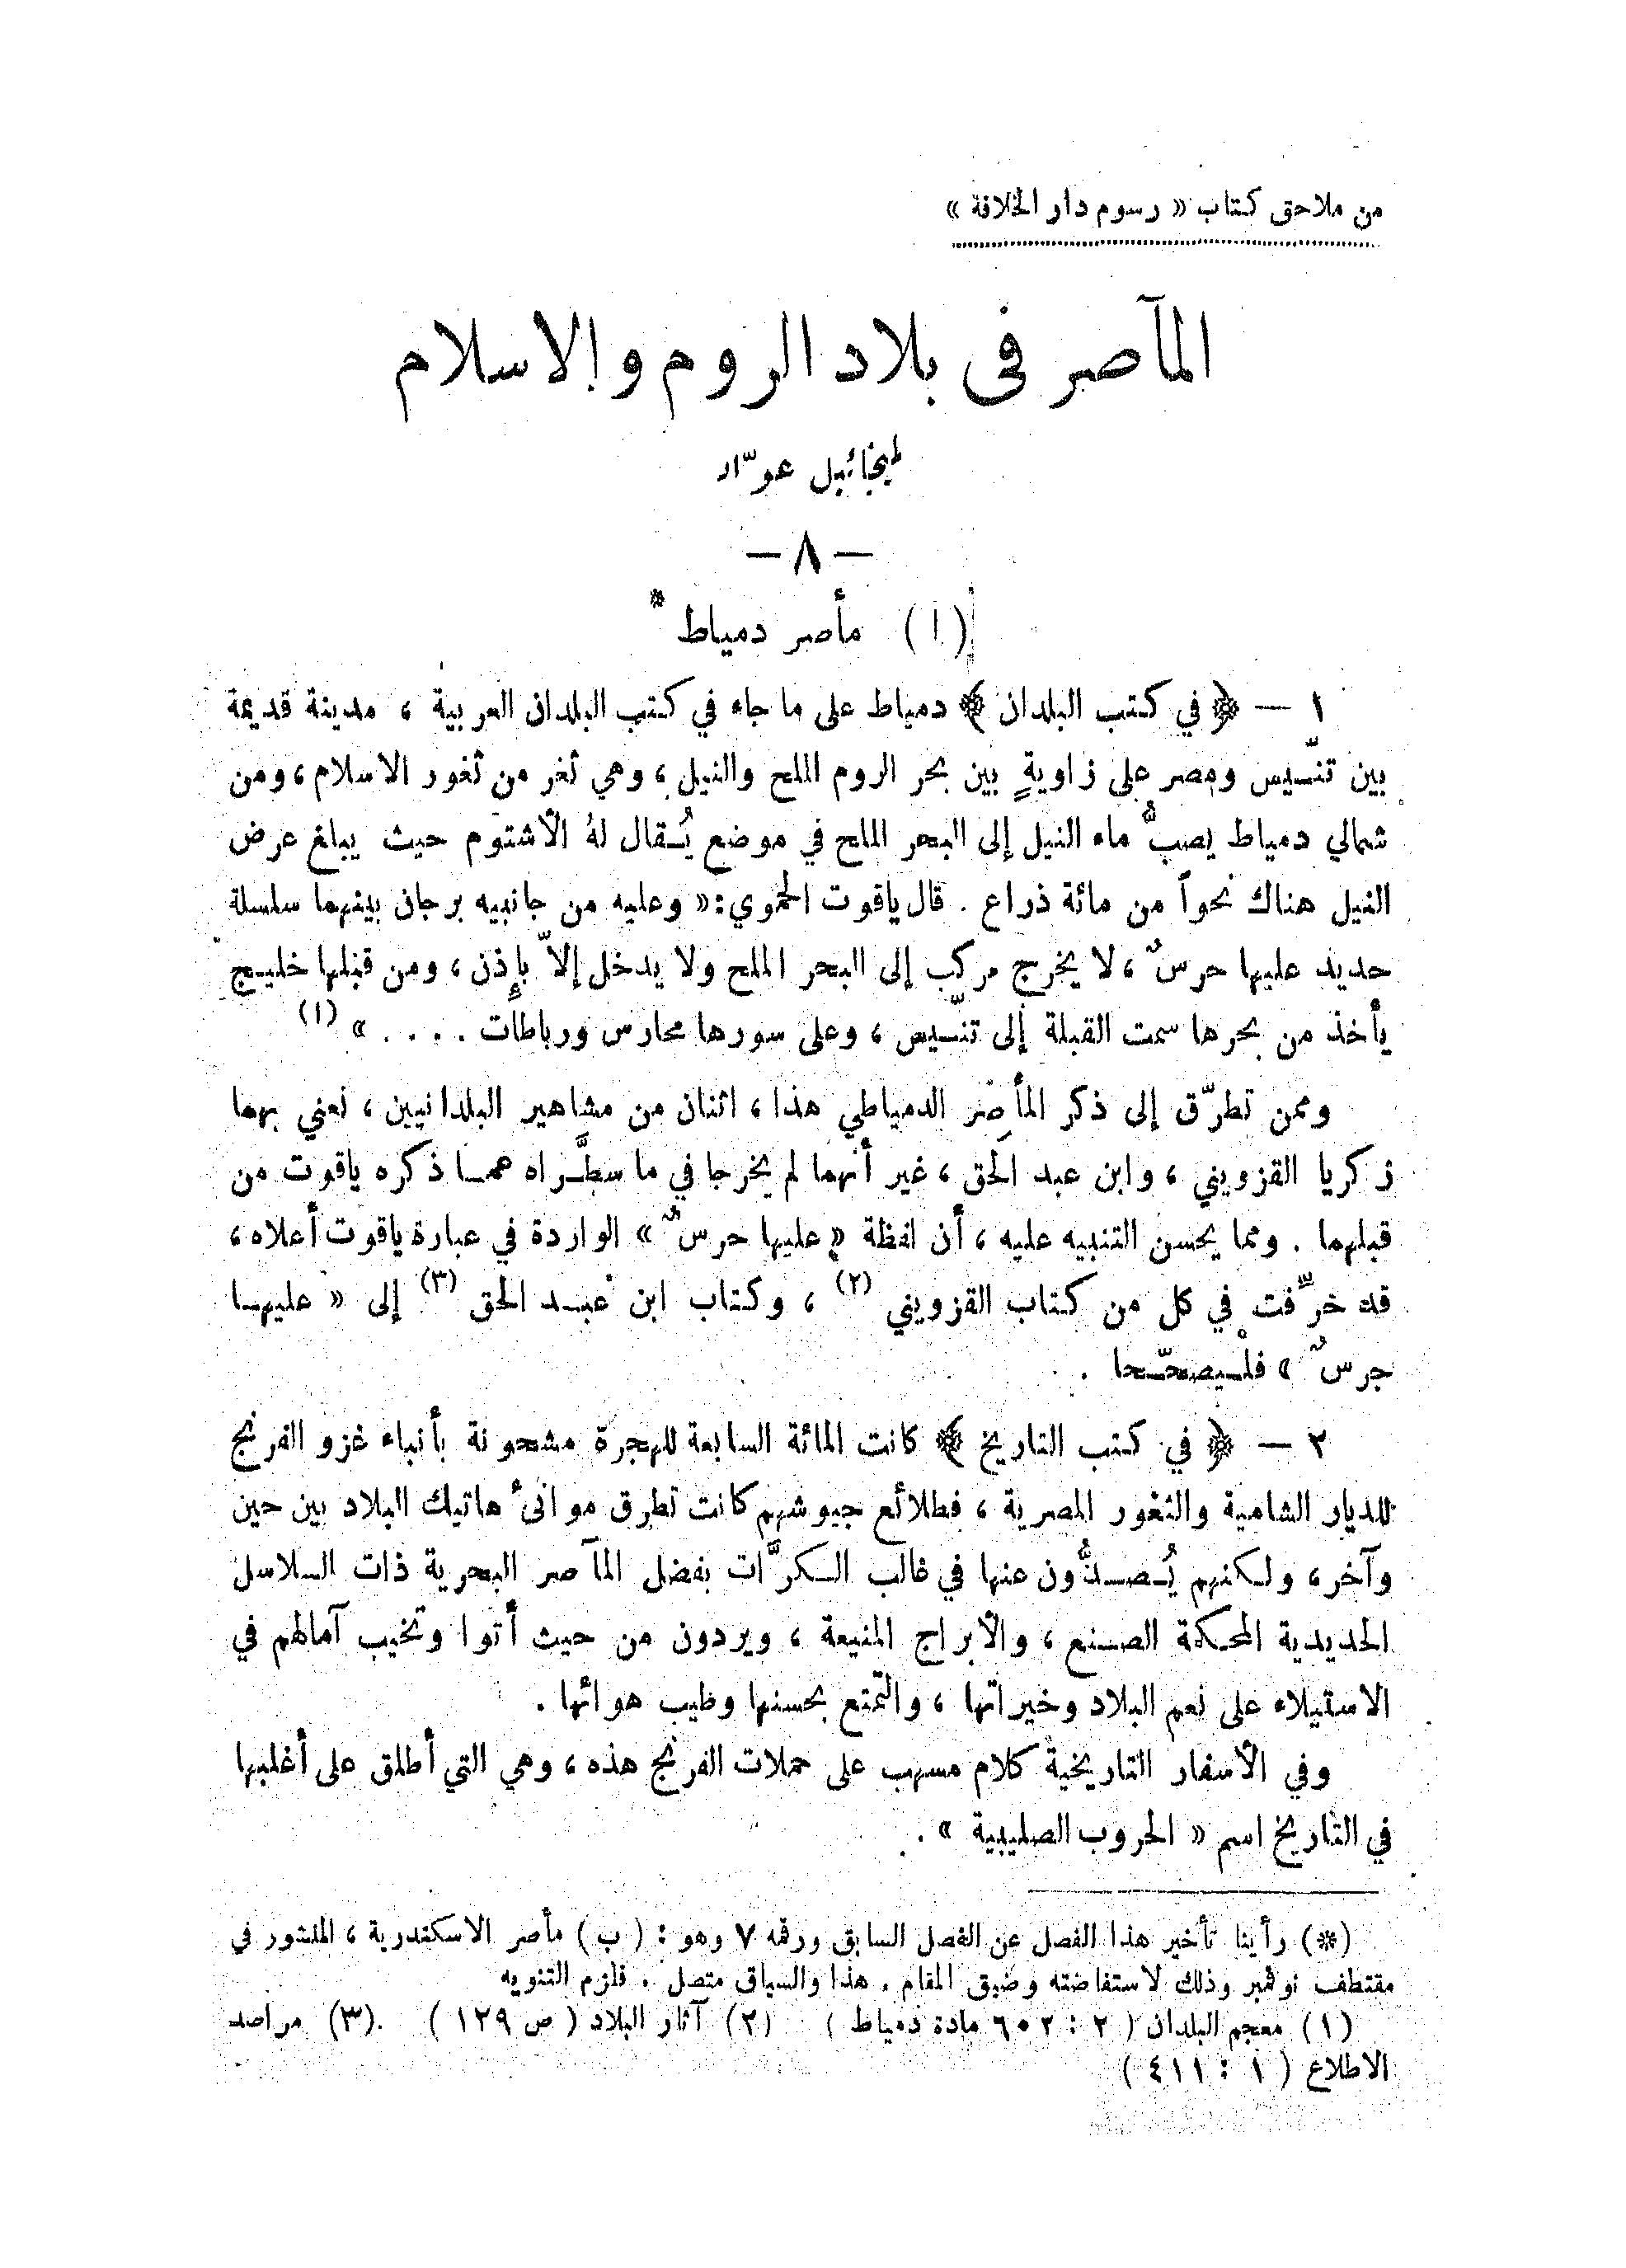 من ملاحق كتاب « رسوم دار الخلافة »
المآصر في بلاد الروم والاسلام
لميخائيل عوّاد
— ٨ —
(١) مأصر دمياط *
١ — ﴿ في كتب البلدان ﴾ دمياط على ما جاء في كتب البلدان العربية ، مدينة قديمة
بين تنّيس ومصر على زاويةٍ بين بحر الروم الملح والنيل ، وهي ثغر من ثغور الاسلام ، ومن
شمالي دمياط يصبُّ ماء النيل إلى البحر الملح في موضع يُقال لهُ الأشتوم حيث يبلغ عرض
النيل هناك نحواً من مائة ذراع . قال ياقوت الحموي : « وعليه من جانبيه برجان بينهما سلسلة
حديد عليها حرسٌ ، لا يخرج مركب إلى البحر الملح ولا يدخل إلاّ بإِذن ، ومن قبلها خليج
يأخذ من بحرها سمت القبلة إلى تنّيس ، وعلى سورها محارس ورباطات . . . . » (١)
وممن تطرّق إلى ذكر المأصِر الدمياطي هذا ، اثنان من مشاهير البلدانيين ، نعني بهما
زكريا القزويني ، وابن عبد الحق ، غير أنهما لم يخرجا في ما سطَّراه عمـا ذكره ياقوت من
قبلهما . ومما يحسن التنبيه عليه ، أن لفظة « عليها حرسٌ » الواردة في عبارة ياقوت أعلاه ،
قد حرِّفت في كل من كتاب القزويني (٢) ، وكتاب ابن عبد الحق (٣) إلى « عليهـا
جرسٌ » فلْيصحّحا .
٢ — ﴿ في كتب التاريخ ﴾ كانت المائة السابعة للهجرة مشحونة بأنباء غزو الفرنج
للديار الشامية والثغور المصرية ، فطلائع جيوشهم كانت تطرق موانئ هاتيك البلاد بين حين
وآخر ، ولكنهم يُصدُّون عنها في غالب الكرَّات بفضل المآصر البحرية ذات السلاسل
الحديدية المحكمة الصنع ، والأبراج المنيعة ، ويردون من حيث أتوا وتخيب آمالهم في
الاستيلاء على نعم البلاد وخيراتها ، والتمتع بحسنها وطيب هوائها .
وفي الأسفار التاريخية كلام مسهب على حملات الفرنج هذه ، وهي التي أطلق على أغلبها
في التاريخ اسم « الحروب الصليبية » .
(*) رأينا تأخير هذا الفصل عن الفصل السابق ورقمه ٧ وهو : ( ب ) مأصر الاسكندرية ، المنشور في
مقتطف نوفمبر وذلك لاستفاضته وضيق المقام . هذا والسياق متصل . فلزم التنويه
(١) معجم البلدان ( ٢ : ٦٠٢ مادة دمياط ) (٢) آثار البلاد ( ص ١٢٩ ) . (٣) مراصد
الاطلاع ( ١ : ٤١١ )